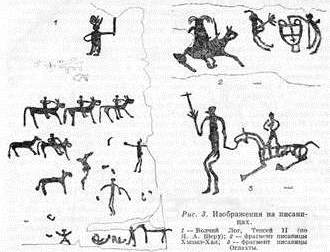 2
3
Рис. 3. Изображения на писани-
цах.
1 — Волчий Лог, Тепсей II (по
Я. А. Шеру); 2 — фрагмент писаницы
3 — фрагмент писаницы
Оглахты.